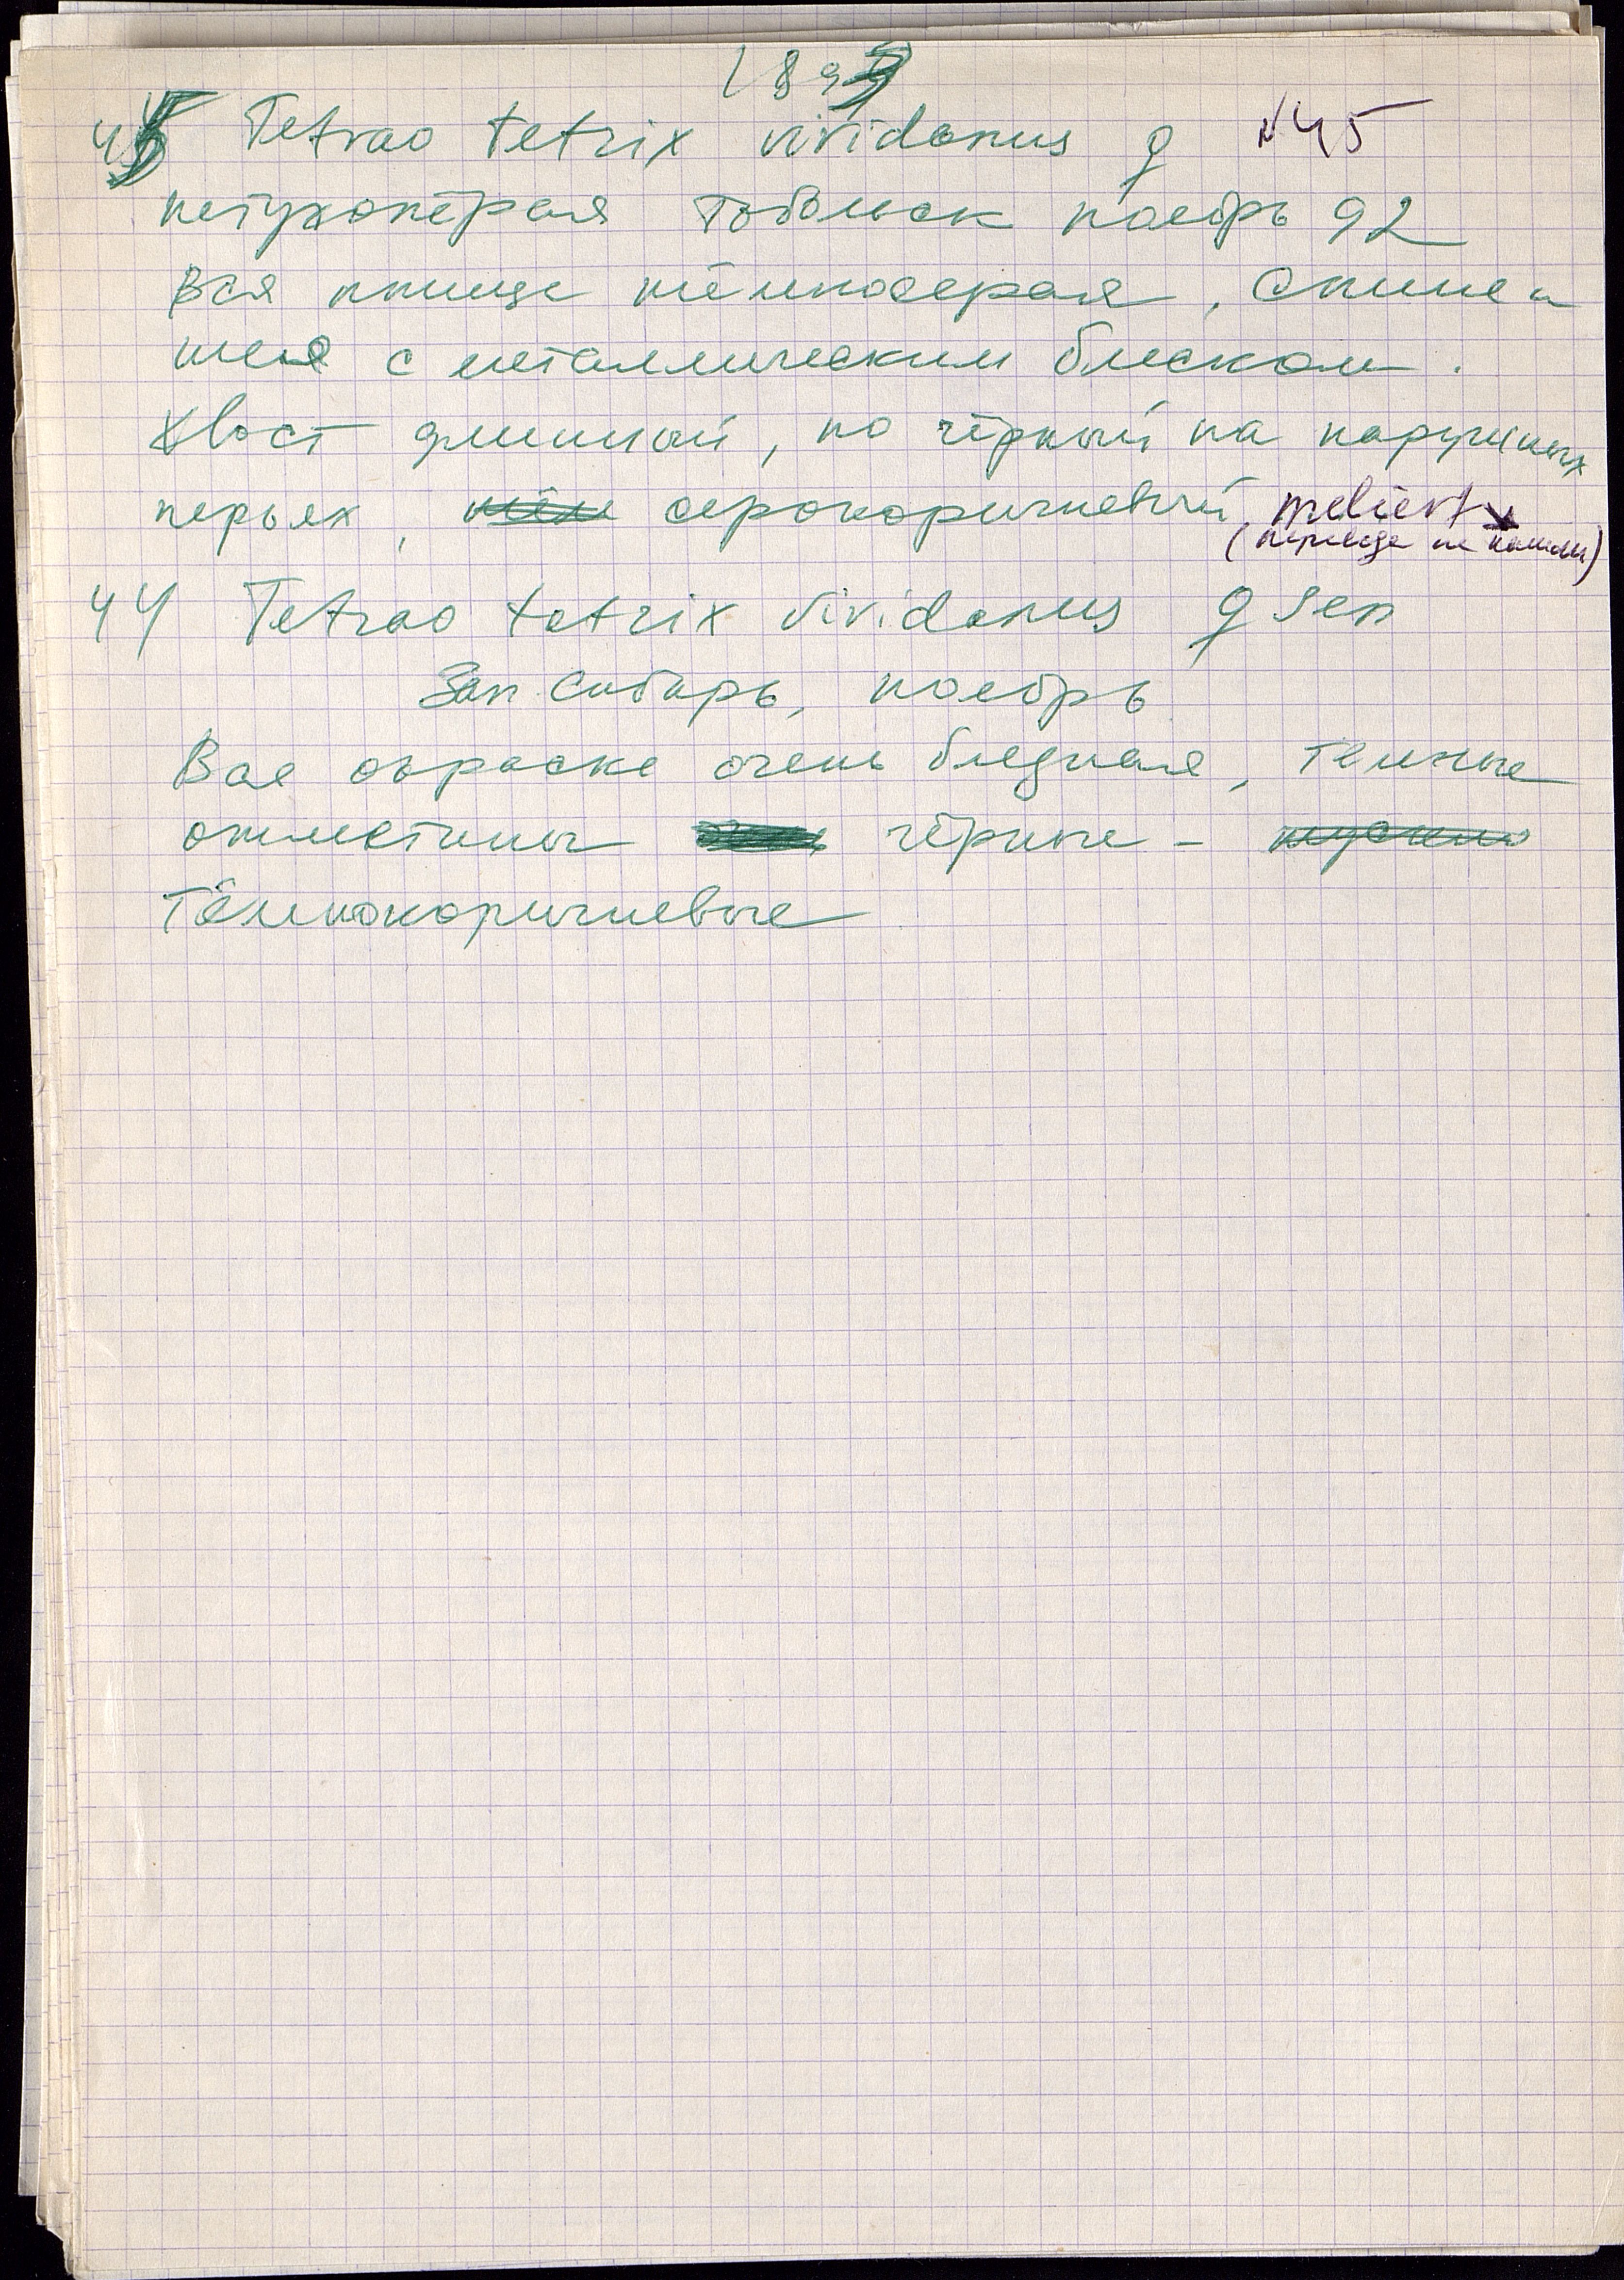 189
45 Tetrao tetrix viridanus ♀ №45
петухопёрая Тобольск ноябрь 92
Вся птица тёмносерая, спина и
шея с металлическим блеском.
Хвост длинный, но чёрный на наружных
перьях, серокоричневый, meliert
(перевода не нашли)
44 Tetrao tetrix viridanus ♀ sen
Зап Сибирь, ноябрь
Вся окраска очень бледная, темные
отметины чёрные -
тёмнокоричневые